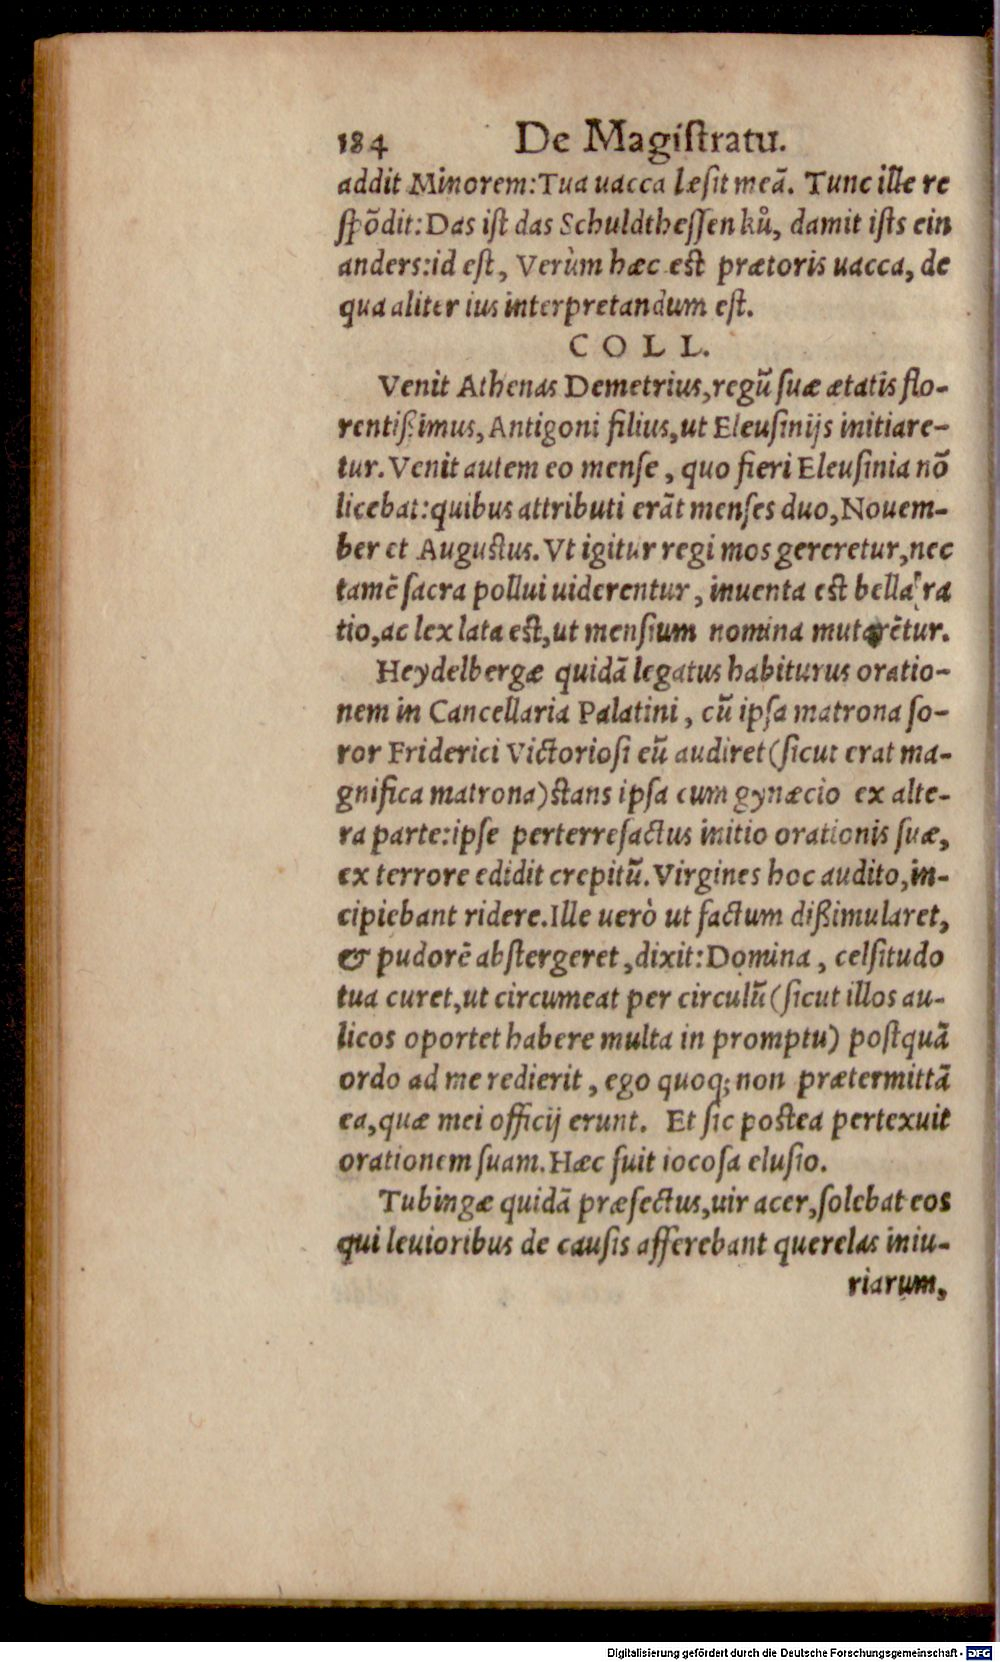 184 De Magiſtratu.
addit Minorem: Tua uacca læſit meã. Tunc ille re
ſpõdit: Das iſt das Schuldtheſſen ků, damit iſts ein
anders: id eſt, Verùm hæc eſt prætoris uacca, de
qua aliter ius interpretandum eſt.
COLL.
Venit Athenas Demetrius, regũ ſuæ ætatis flo-
rentiſsimus, Antigoni filius, ut Eleuſinijs initiare-
tur. Venit autem eo menſe, quo fieri Eleuſinia nõ
licebat: quibus attributi erãt menſes duo, Nouem-
ber et Auguſtus. Vt igitur regi mos gereretur, nec
tamẽ ſacra pollui uiderentur, inuenta eſt bella ra
tio, ac lex lata eſt, ut menſium nomina mutarẽtur.
Heydelbergæ quidã legatus habiturus oratio-
nem in Cancellaria Palatini, cũ ipſa matrona ſo-
ror Friderici Victorioſi eũ audiret (ſicut erat ma-
gnifica matrona) ſtans ipſa cum gynæcio ex alte-
ra parte: ipſe perterrefactus initio orationis ſuæ,
ex terrore edidit crepitũ. Virgines hoc audito, in-
cipiebant ridere. Ille uerò ut factum diſsimularet,
& pudorẽ abſtergeret, dixit: Domina, celſitudo
tua curet, ut circumeat per circulũ (ſicut illos au-
licos oportet habere multa in promptu) poſtquã
ordo ad me redierit, ego quoq; non prætermittã
ea, quæ mei officij erunt. Et ſic poſtea pertexuit
orationem ſuam. Hæc fuit iocoſa eluſio.
Tubingæ quidã præfectus, uir acer, ſolebat eos
qui leuioribus de cauſis afferebant querelas iniu-
riarum,
Digitalisierung gefördert durch die Deutsche Forschungsgemeinschaft - DFG